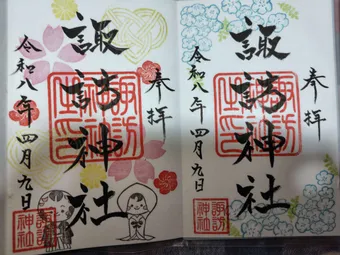 奉拝
諏訪神社
令和八年四月九日
諏訪
神社
奉拝
諏訪神社
令和八年四月九日
諏訪
神社